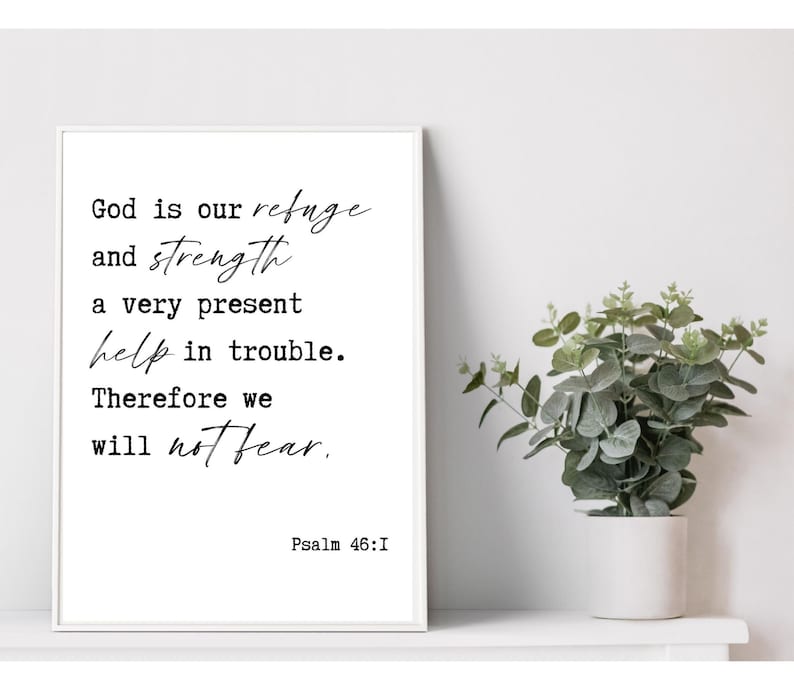 God is our refuge
and strength
a very present
help in trouble.
Therefore we
will not fear.
Psalm 46:I